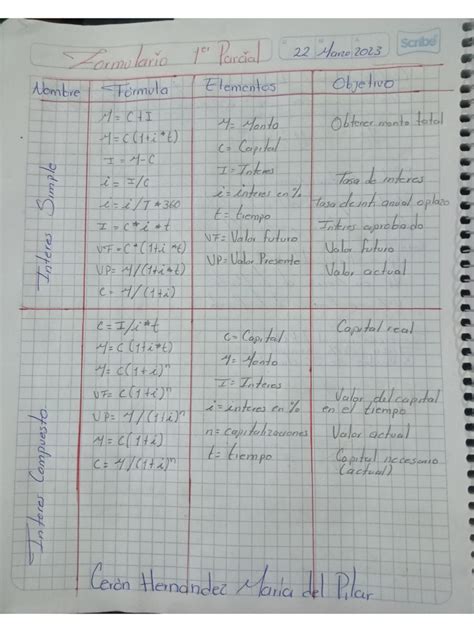 Formulario 1er Parcial
22 Marzo 2023
Scribe
Nombre Fórmula Elementos Objetivo
Interes Simple
M= C+I
M=C(1+i*t)
I= M-C
i= I/C
i= i/I*360
I= C*i*t
VF=C*(1+i*t)
VP= M/(1+i*t)
C= M/(1+i)
M= Monto
C= Capital
I= Interes
i= interes en %
t= tiempo
VF= Valor futuro
VP= Valor Presente
Obtener monto total
Tasa de interes
Tasa de int anual a plazo
Interes
Valor futuro
Valor actual
Interes Compuesto
C= I/i*t
M=C(1+i*t)
M= C(1+i)ⁿ
VF= C(1+i)ⁿ
VP= M/(1+i)ⁿ
M= C(1+i)
C= M/(1+i)ⁿ
C= Capital
M= Monto
I= Interes
i= interes en %
n= capitalizaciones
t= tiempo
Capital real
Valor del capital
en el tiempo
Valor actual
Capital necesario
(actual)
Cerón Hernández María del Pilar